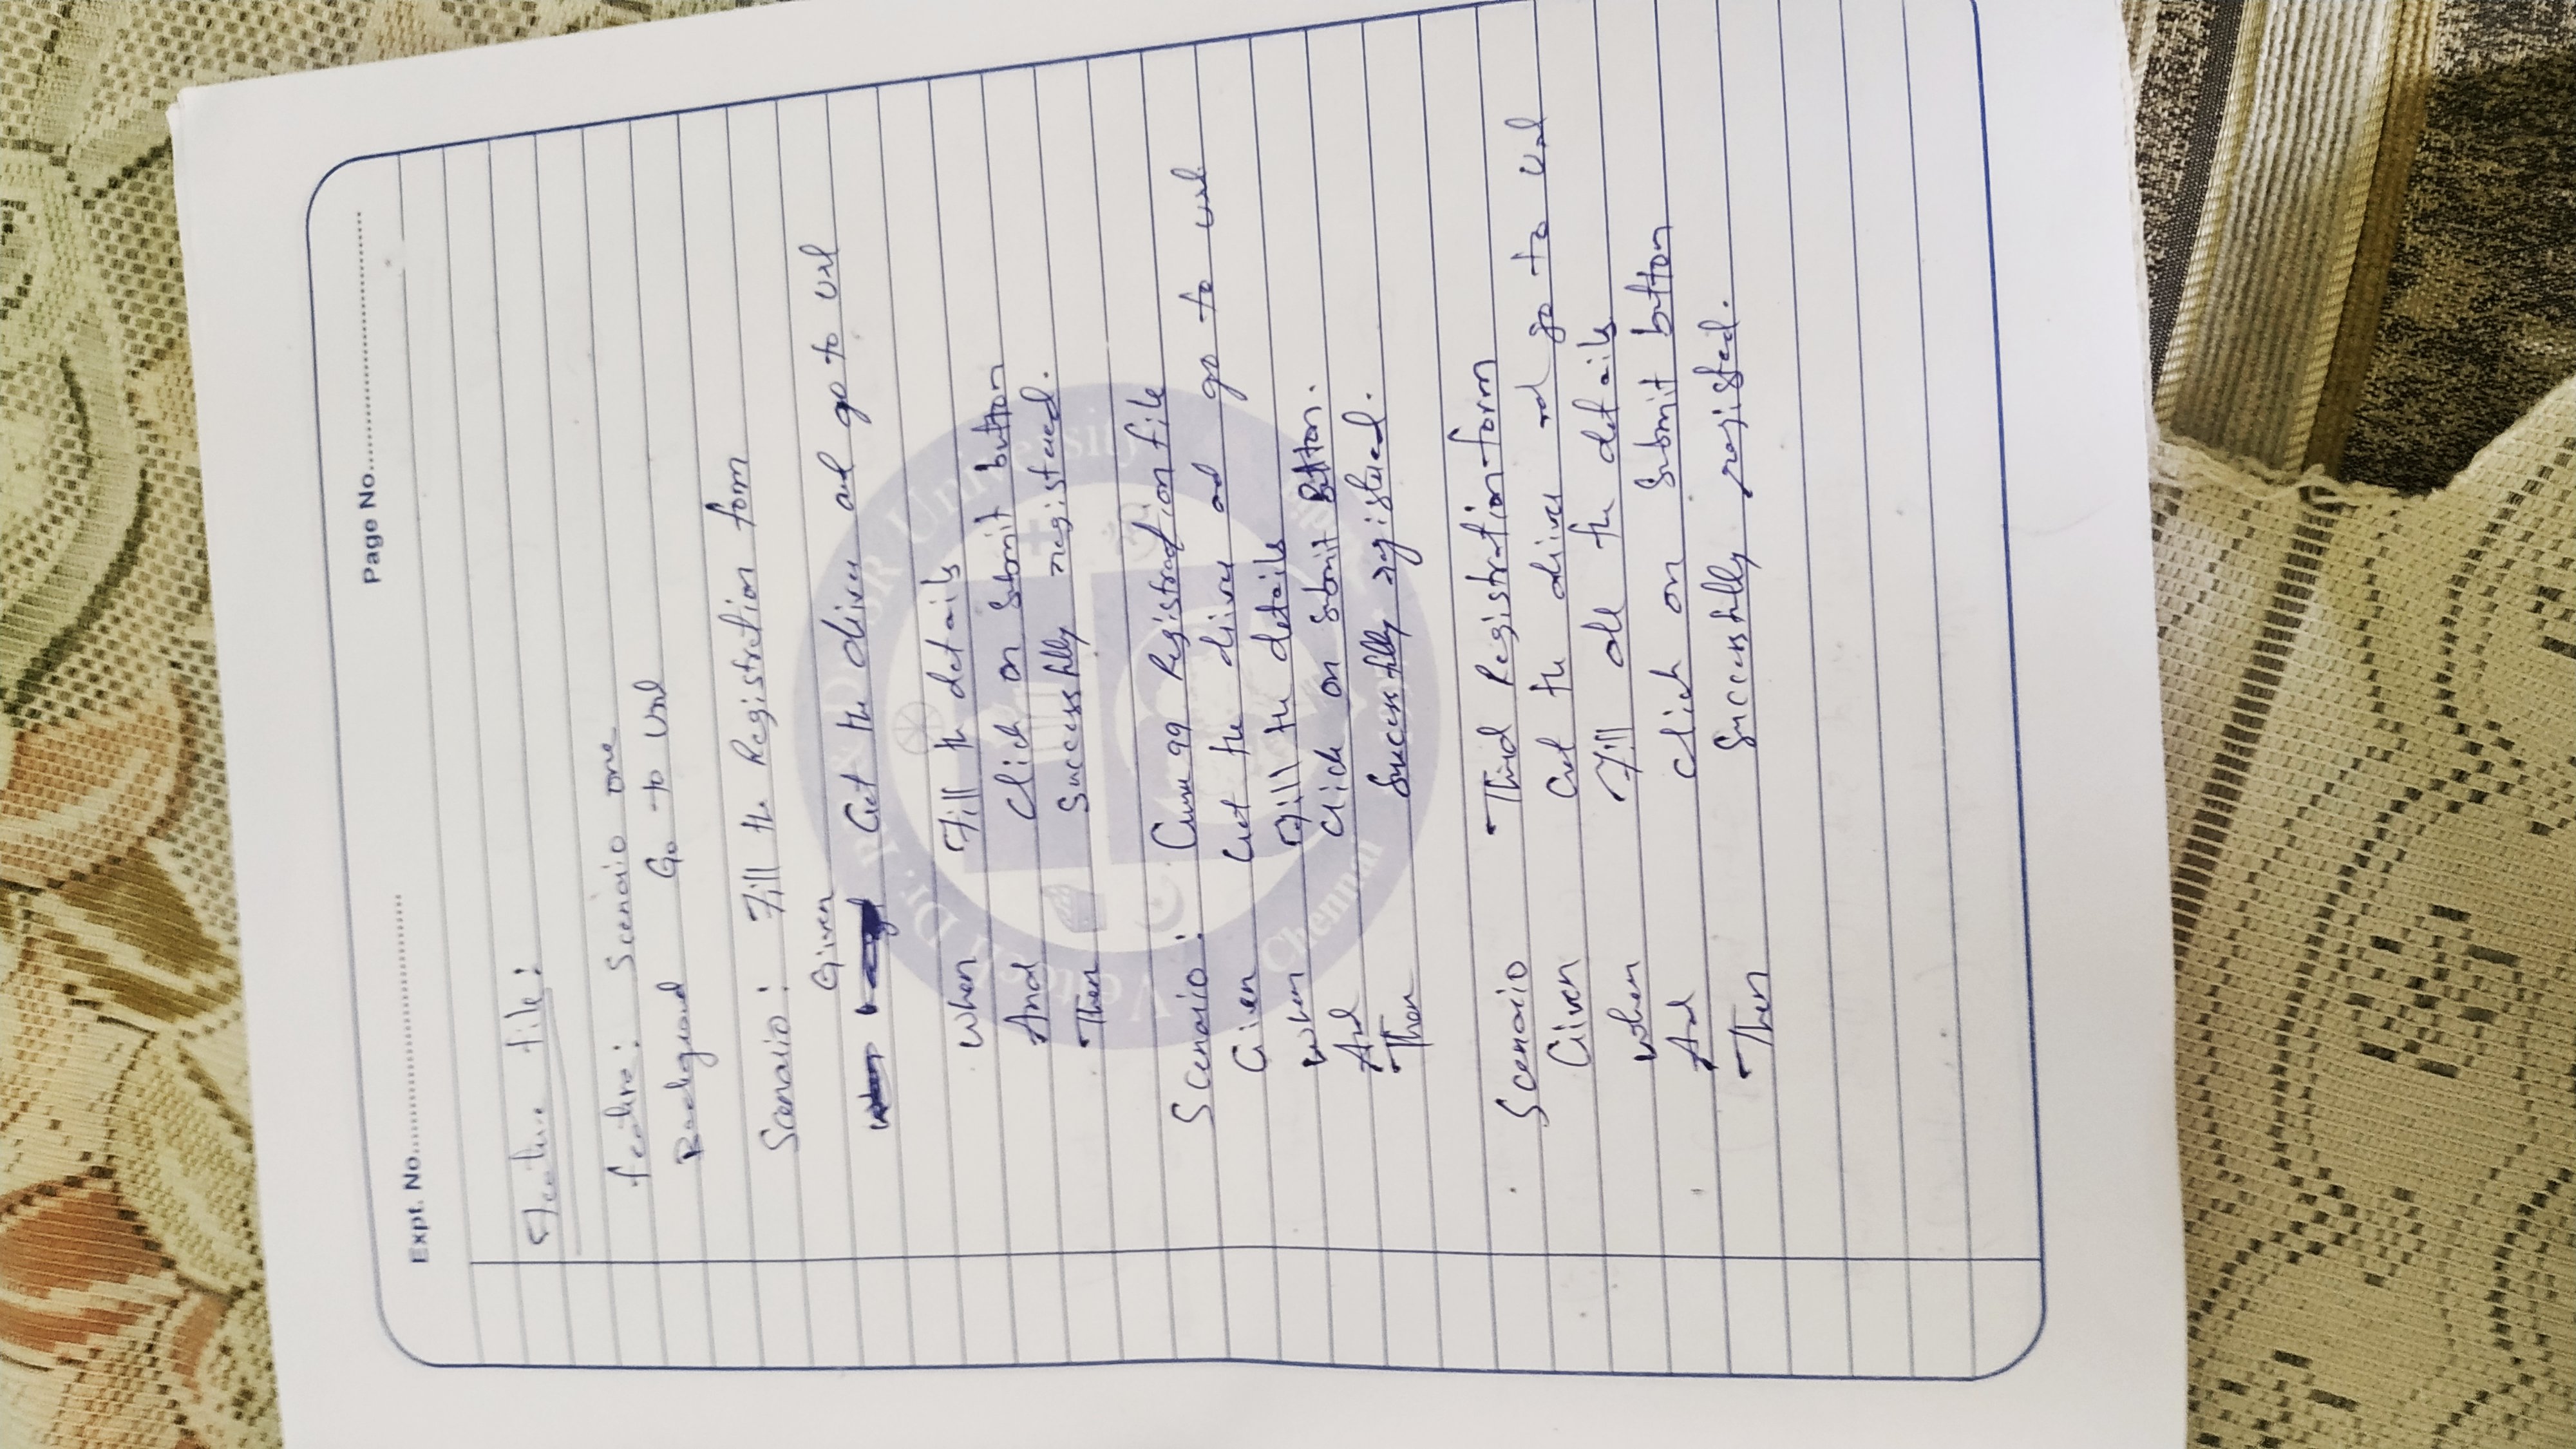 Expt. No.
Page No.
Feature file:
feature: Scenario one
Background Go to Url
Scenario: Fill the Registration form
Given
Get the driver and go to url
When Fill the details
And Click on Submit button
Then Successfully registered.
Scenario: Guru 99 Registration file
Given Get the driver and go to url
When Fill the details
And Click on Submit Button.
Then Successfully registered.
Scenario Third Registration form
Given Get the driver and go to Url
when Fill all the details
And Click on Submit button
Then Successfully registed.
Vel Tech Dr. RR & Dr. SR University
Chennai